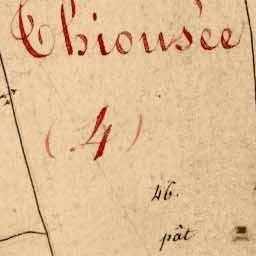 Chiousée
(4)
46.
pât